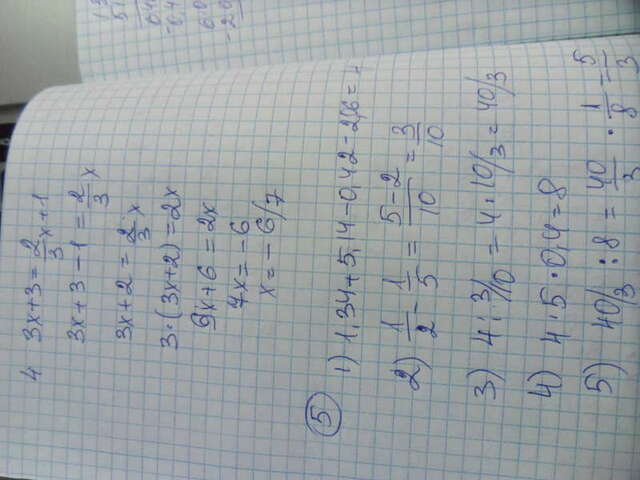 4 3x+3=2/3x+1
3x+3-1=2/3x
3x+2=2/3x
3·(3x+2)=2x
9x+6=2x
7x=-6
x=-6/7
5
1) 1,34+5,14-0,42-2,6=
2) 1/2-1/5=5-2/10=3/10
3) 4:3/10=4·10/3=40/3
4) 4·5·0,4=8
5) 40/3:8=40/3·1/8=5/3